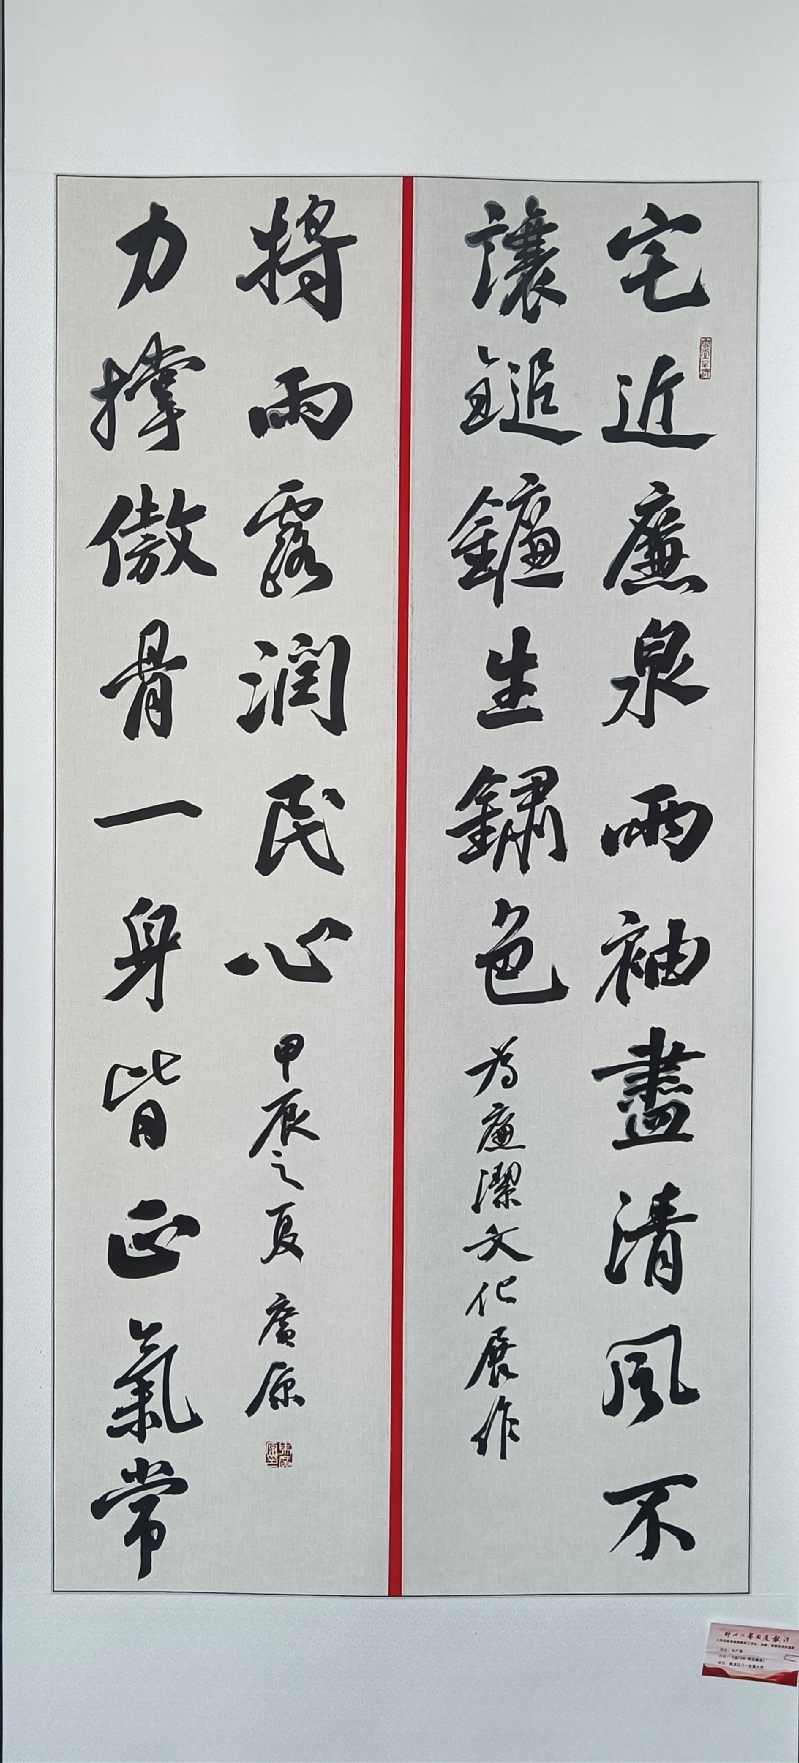 宅近廉泉兩袖盡清風不
讓鎚鐮生鏽色
為廉潔文化展作
力撑傲骨一身皆正氣常
將雨露潤民心
甲辰之夏 廣原